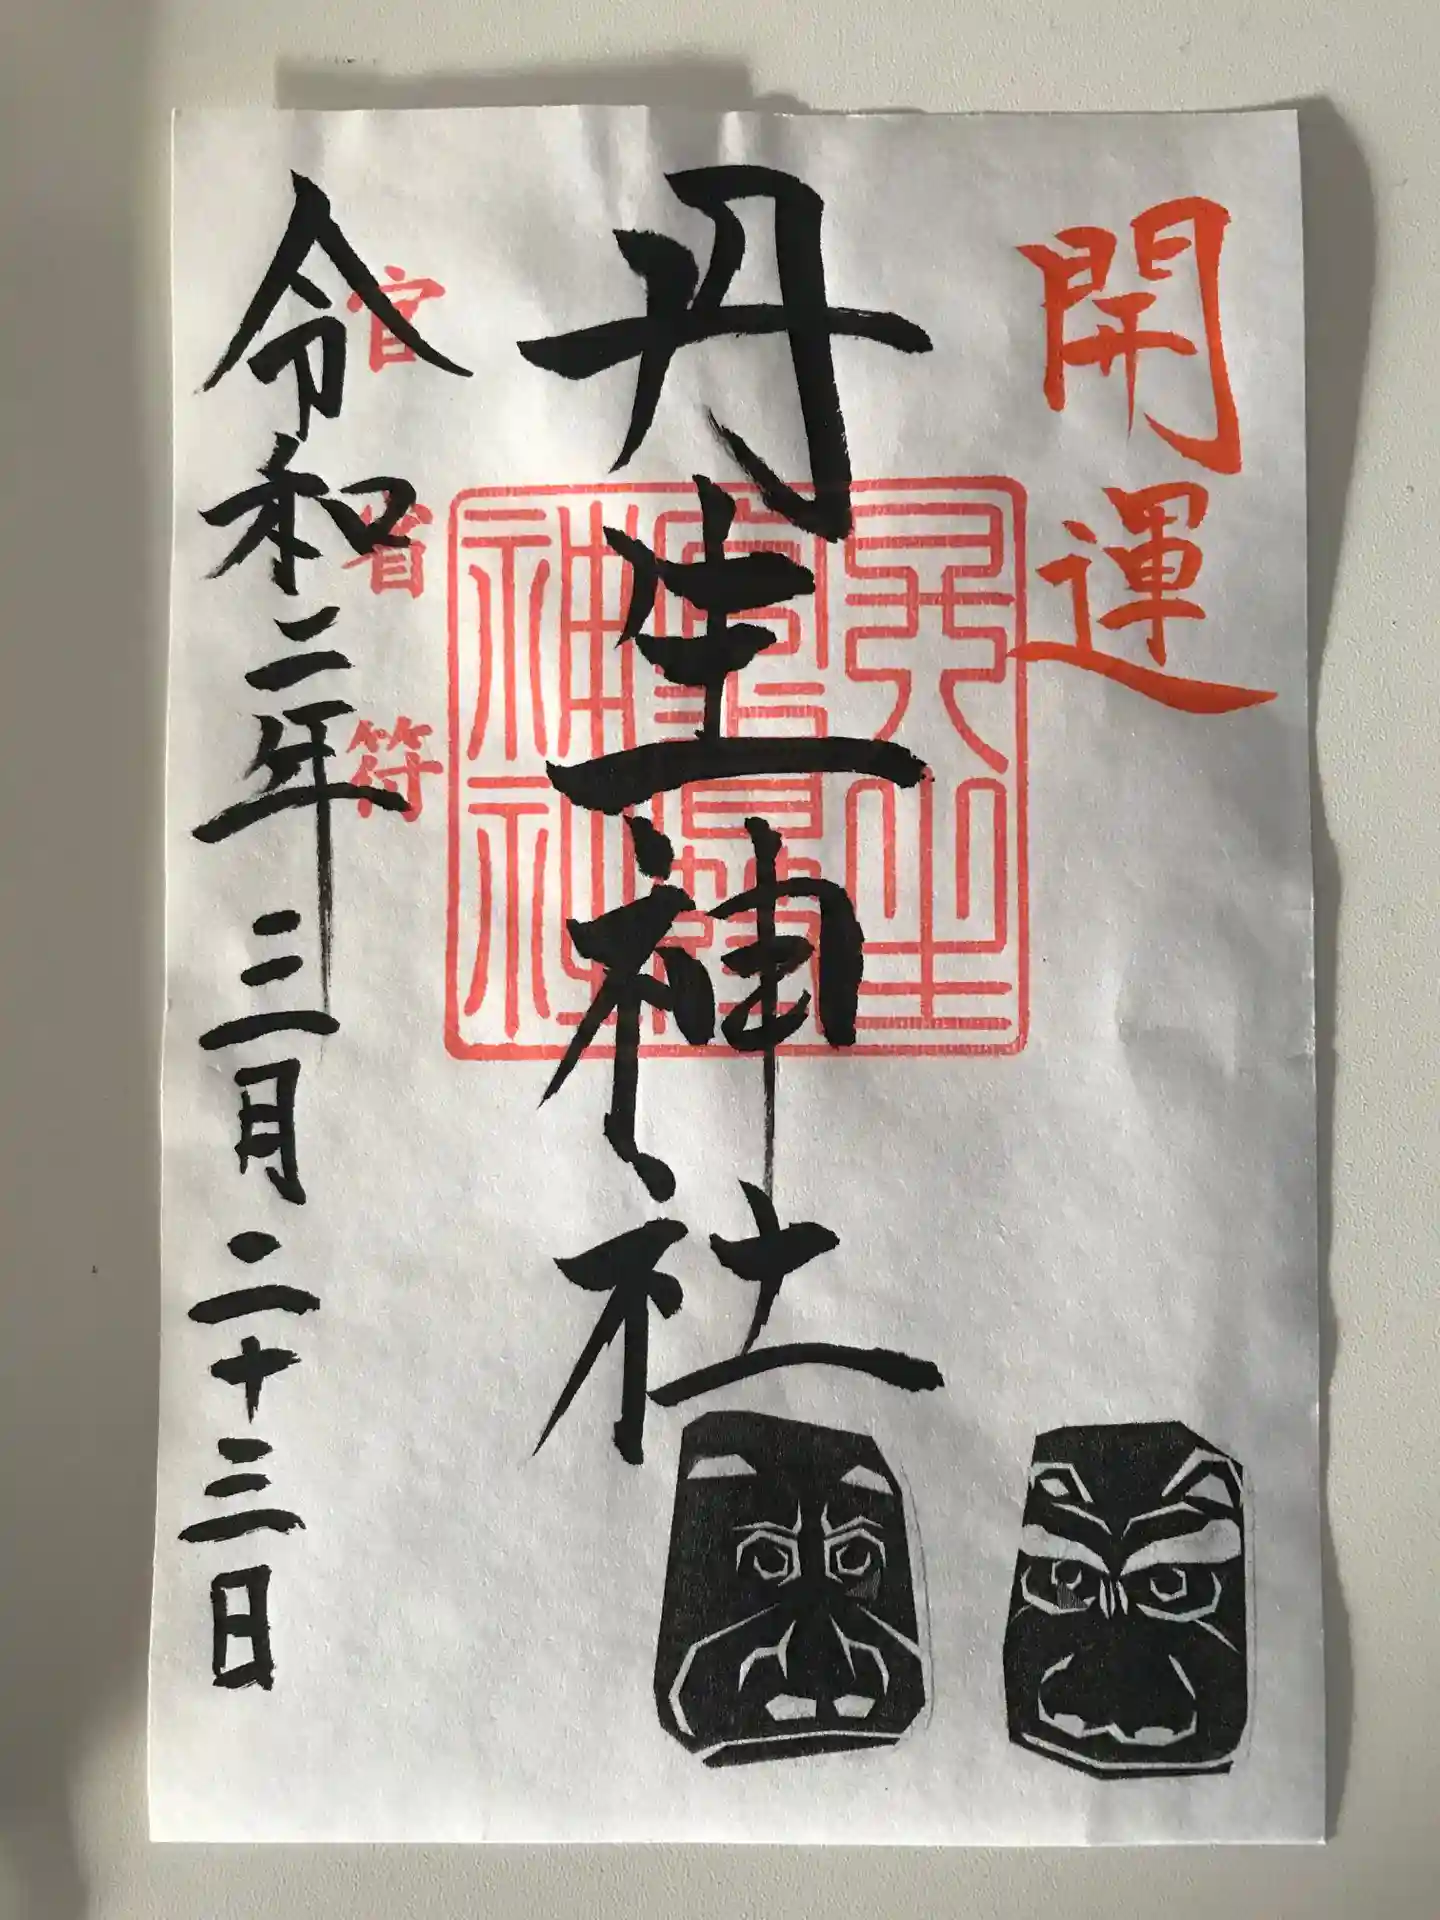 開運
丹生神社
神社
官省符
令和二年三月二十三日